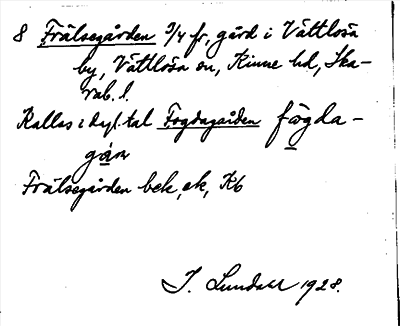 8 Frälsegården 3/4 fr, gård i Vättlösa
by, Vättlösa sn, Kinne hd, Ska-
rab. l.
Kallas i dagl. tal Fogdagården fógda-
gán
Frälsegården bek, ek, Kb
I. Lundahl 1928.